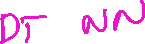 DT NN